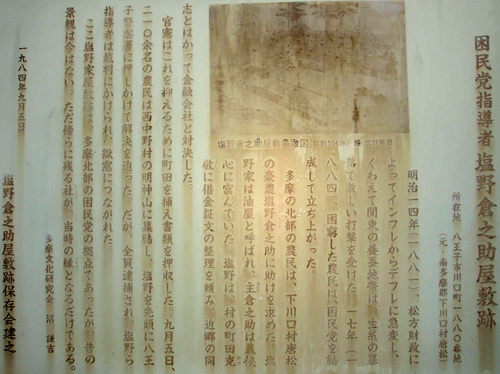 困民党指導者 塩野倉之助屋敷跡
所在地 八王子市川口町一八八〇番地
(元・南多摩郡下川口村唐松)
明治一四年(一八八一)、松方財政に
よってインフレからデフレに急変し、
くわえて関東の養蚕地帯は、生糸の暴
落で激しい打撃を受けた。一七年(一
八八四)、困窮した農民は、困民党を結
成して立ち上がった。
多摩の北部の農民は、下川口村唐松
の豪農塩野倉之助に助けを求めた。塩
野家は油屋と呼ばれ、主倉之助は義侠
心に富んでいた。塩野は、村の町田克
敬に借金証文の整理を頼み、近郷の同
塩野倉之助屋敷鳥瞰図
志とはかって金融会社と対決した。
官憲はこれを抑えるために町田を捕え書類を押収した。九月五日、
二一〇余名の農民は西中野村の明神山に集結し、塩野を先頭に八王
子警察署に押しかけて解決を迫った。だが、全員逮捕され、塩野ら
指導者は裁判にかけられ、獄窓につながれた。
ここ塩野家屋敷跡は、多摩北部の困民党の拠点であったが、昔の
景観は今はない。ただ傍らに残る社が、当時の縁となるだけである。
多摩文化研究会 沼 謙吉
一九八四年九月五日
塩野倉之助屋敷跡保存会建之